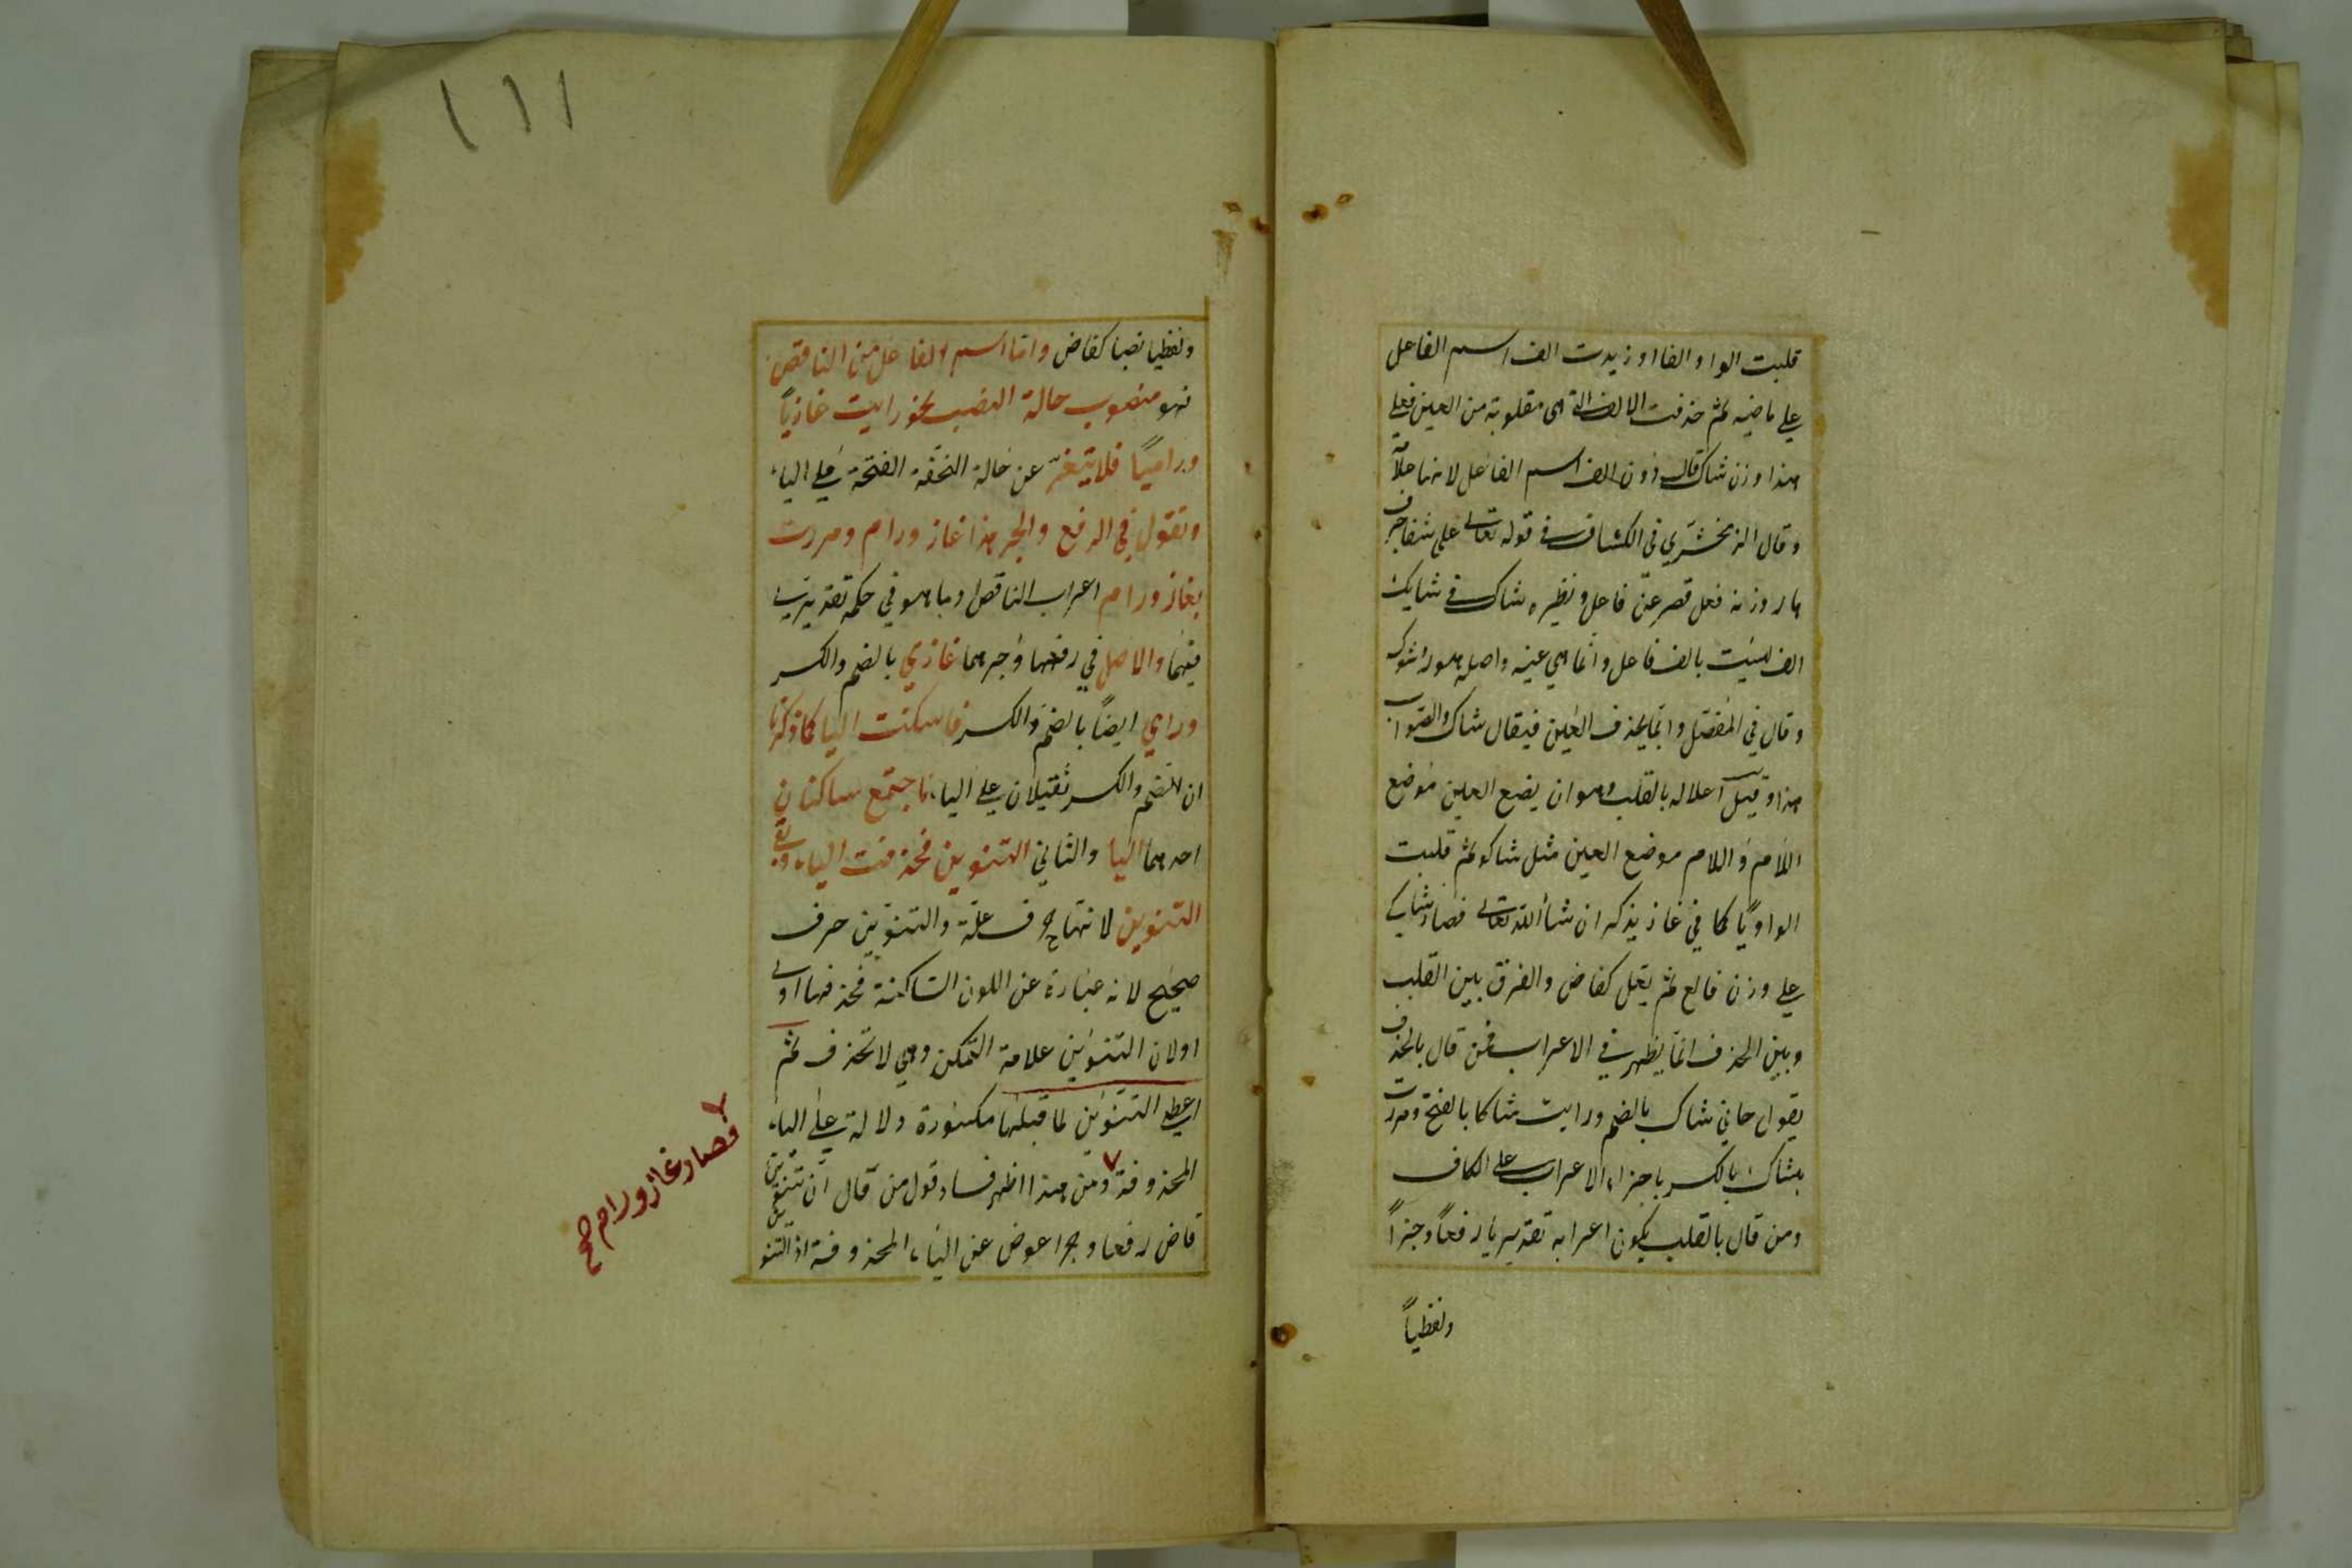 قلبت الواو الفا او زيدت الف اسم الفاعل
على ماضيه ثم حذفت الالف التي هي مقلوبة من العين فعلى
هذا وزن شاك قال دون الف اسم الفاعل لانها علامة
وقال الزمخشري في الكشاف في قوله تعالى على شفا جرف
هار وزنه فعل قصر عن فاعل ونظيره شاك في شايك
الف ليست بالف فاعل وانما هي عينه واصله هور وشوك
وقال في المفصل وانما يحذف العين فيقال شاك والصواب
هذا وقيل اعلاله بالقلب وهو ان يضع العين موضع
اللام واللام موضع العين مثل شاكو ثم قلبت
الواو يًا كما في غاز يذكر ان شاء الله تعالى فصار شاكي
على وزن فالع ثم يعل كقاض والفرق بين القلب
وبين الحذف انما يظهر في الاعراب فمن قال بالحذف
يقول جاني شاك بالضم ورايت شاكا بالفتح ومررت
بشاك بالكسر باجراء الاعراب على الكاف
ومن قال بالقلب يكون اعرابه تقديريا رفعًا وجرًا
ولفظيًا
١١١
ولفظيا نصبا كقاض واما اسم الفاعل من الناقص
فهو منصوب حالة النصب نحو رايت غازيًا
وراميًا فلا يتغير عن حالة الخفة الفتحة على الياء
وتقول في الرفع والجر هذا غاز ورام ومررت
بغاز ورام اعراب الناقص وما هو في حكمه تقديري
فيهما والاصل في رفعهما وجرهما غازي بالضم والكسر
ورامي ايضًا بالضم والكسر فاسكنت اليا كما ذكرنا
ان الضم والكسر ثقيلان على الياء فاجتمع ساكنان
احدهما اليا والثاني التنوين فحذفت الياء وبقي
التنوين لانها حرف علة والتنوين حرف
صحيح لانه عبارة عن النون الساكنة فحذفها اولى
اولان التنوين علامة التمكن وهي لا تحذف ثم
اعطي التنوين لما قبلها مكسورة دلالة على الياء
المحذوفة ومن هذا اظهر فساد قول من قال ان تنوين
قاض رفعا وجرا عوض عن الياء المحذوفة اذ التنو
فصار غاز ورام صح